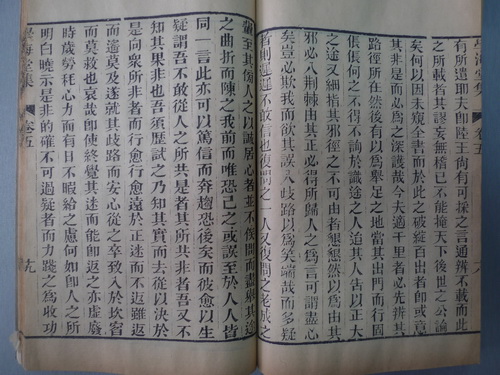 有所遣即夫卽陸王尚有可採之言通辨不載而此
之所載者其謬妄無稽已不能掩天下後世之公論
矣何以因未窺全書而於此之破綻百出者卽或意
其非是而必爲之深護哉今夫適千里者必先辨其
路徑所在然後有以爲舉足之地當其出門而行固
倀倀何之不得不詢於識途之人迨其人告以正大
之途又細指其邪徑之不可由者懇懇然以爲由其
邪必入荊棘由其正必得所歸人之爲言可謂盡心
矣豈必欺我而欲其誤入歧路以爲笑端哉而多疑
者則遲遲不敢信也復問之一人又復問之老成之
輩至其傷人之以誠居心者
之曲折而陳之我前而唯恐己之或誤至於人人皆
同一言此亦可以篤信而奔趨恐後矣而彼愈以生
疑謂吾不敢從人之所共是者其所共非者吾又不
知其果非也吾須歷試之乃知其實而去從以決於
是向衆所非者而行愈行愈遠於正途而不返雖返
而遙莫及遂就其歧路而安心從之卒致入於坎窞
而莫救也哀哉卽使終覺其迷而能卽返之亦虛廢
時歲勞耗心力而有日不暇給之慮何如卽人之所
明白曉示是非的確不可過疑者而力踐之爲收功
學海堂集
卷五
十九
學海堂集
卷五
十八